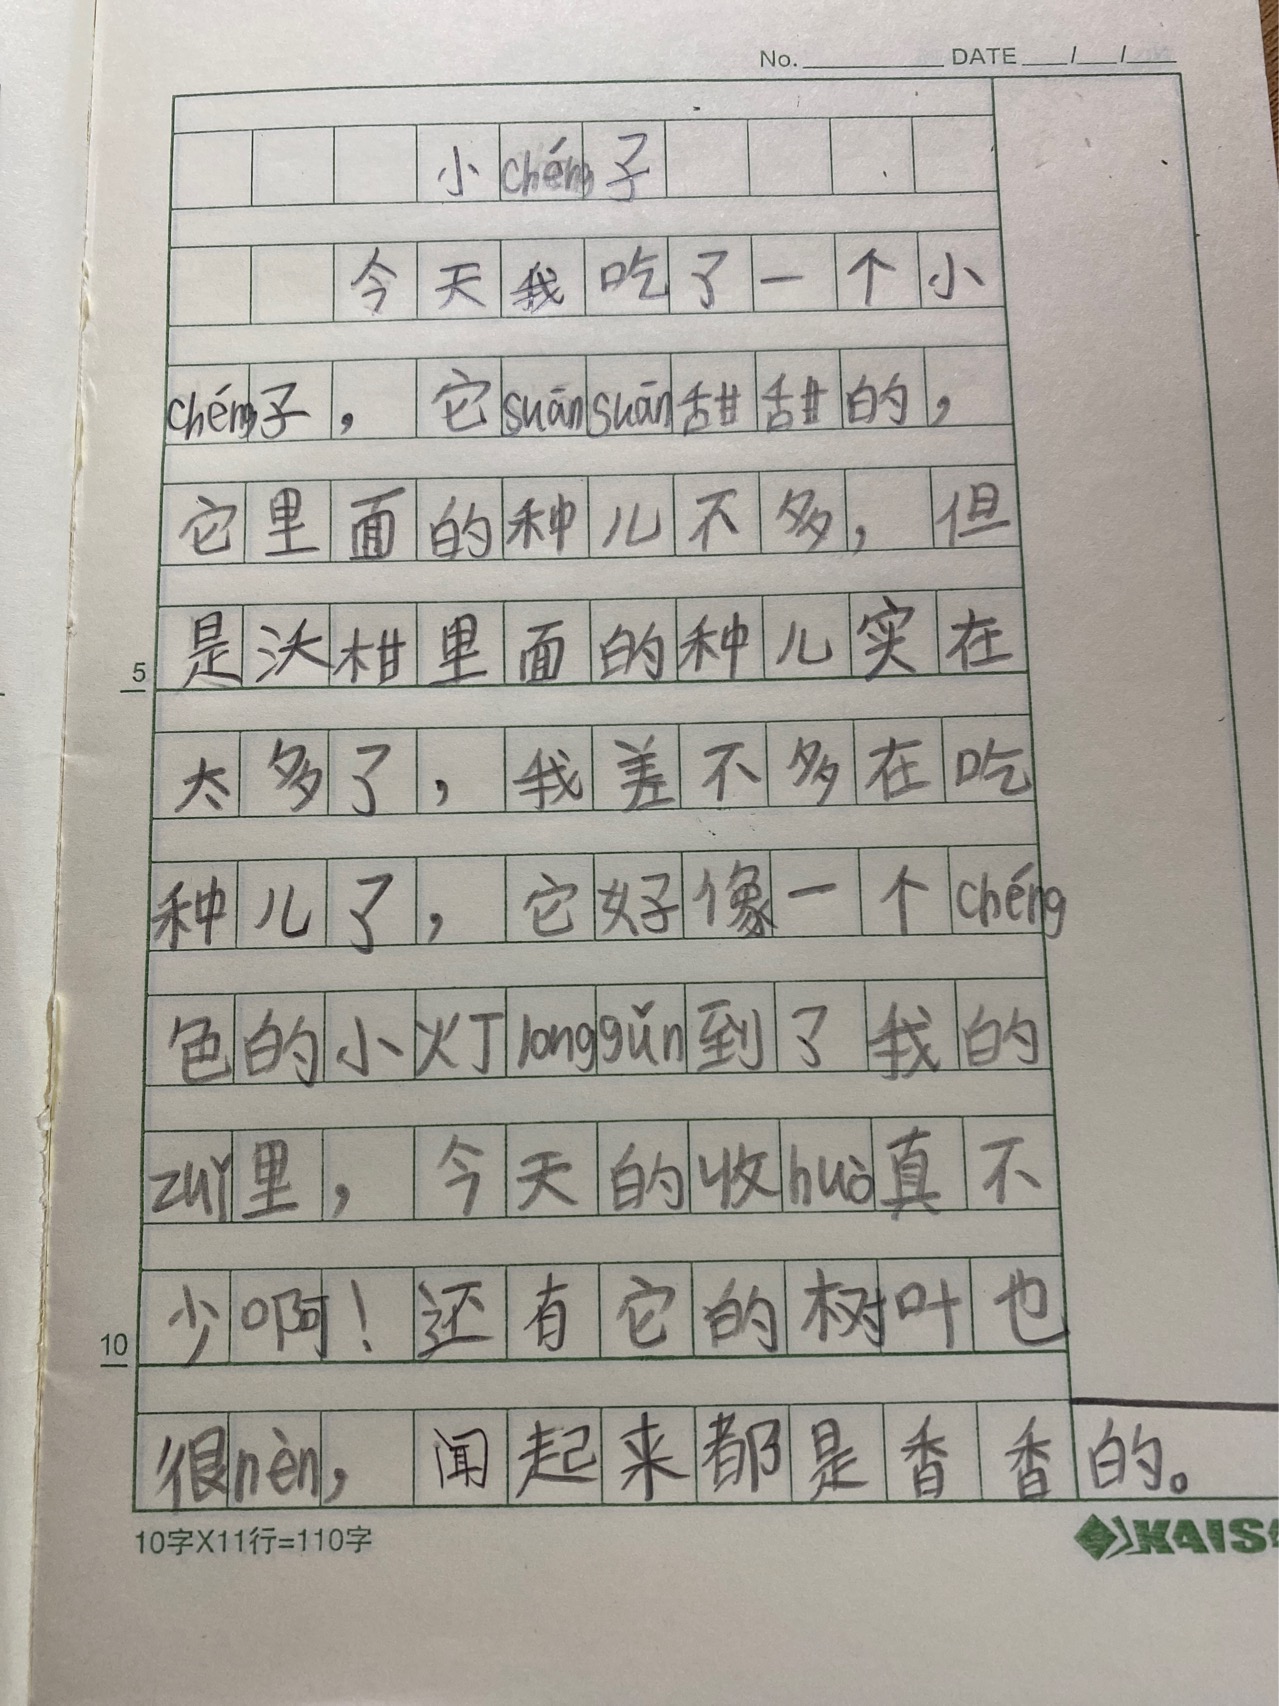 No. DATE / /
小chéng子
今天我吃了一个小
chéng子，它suānsuān甜甜的，
它里面的种儿不多，但
是沃柑里面的种儿实在
5
太多了，我差不多在吃
种儿了，它好像一个chéng
色的小灯longgǔn到了我的
zuǐ里，今天的收huò真不
少啊！还有它的树叶也
10
很nèn，闻起来都是香香的。
10字X11行=110字